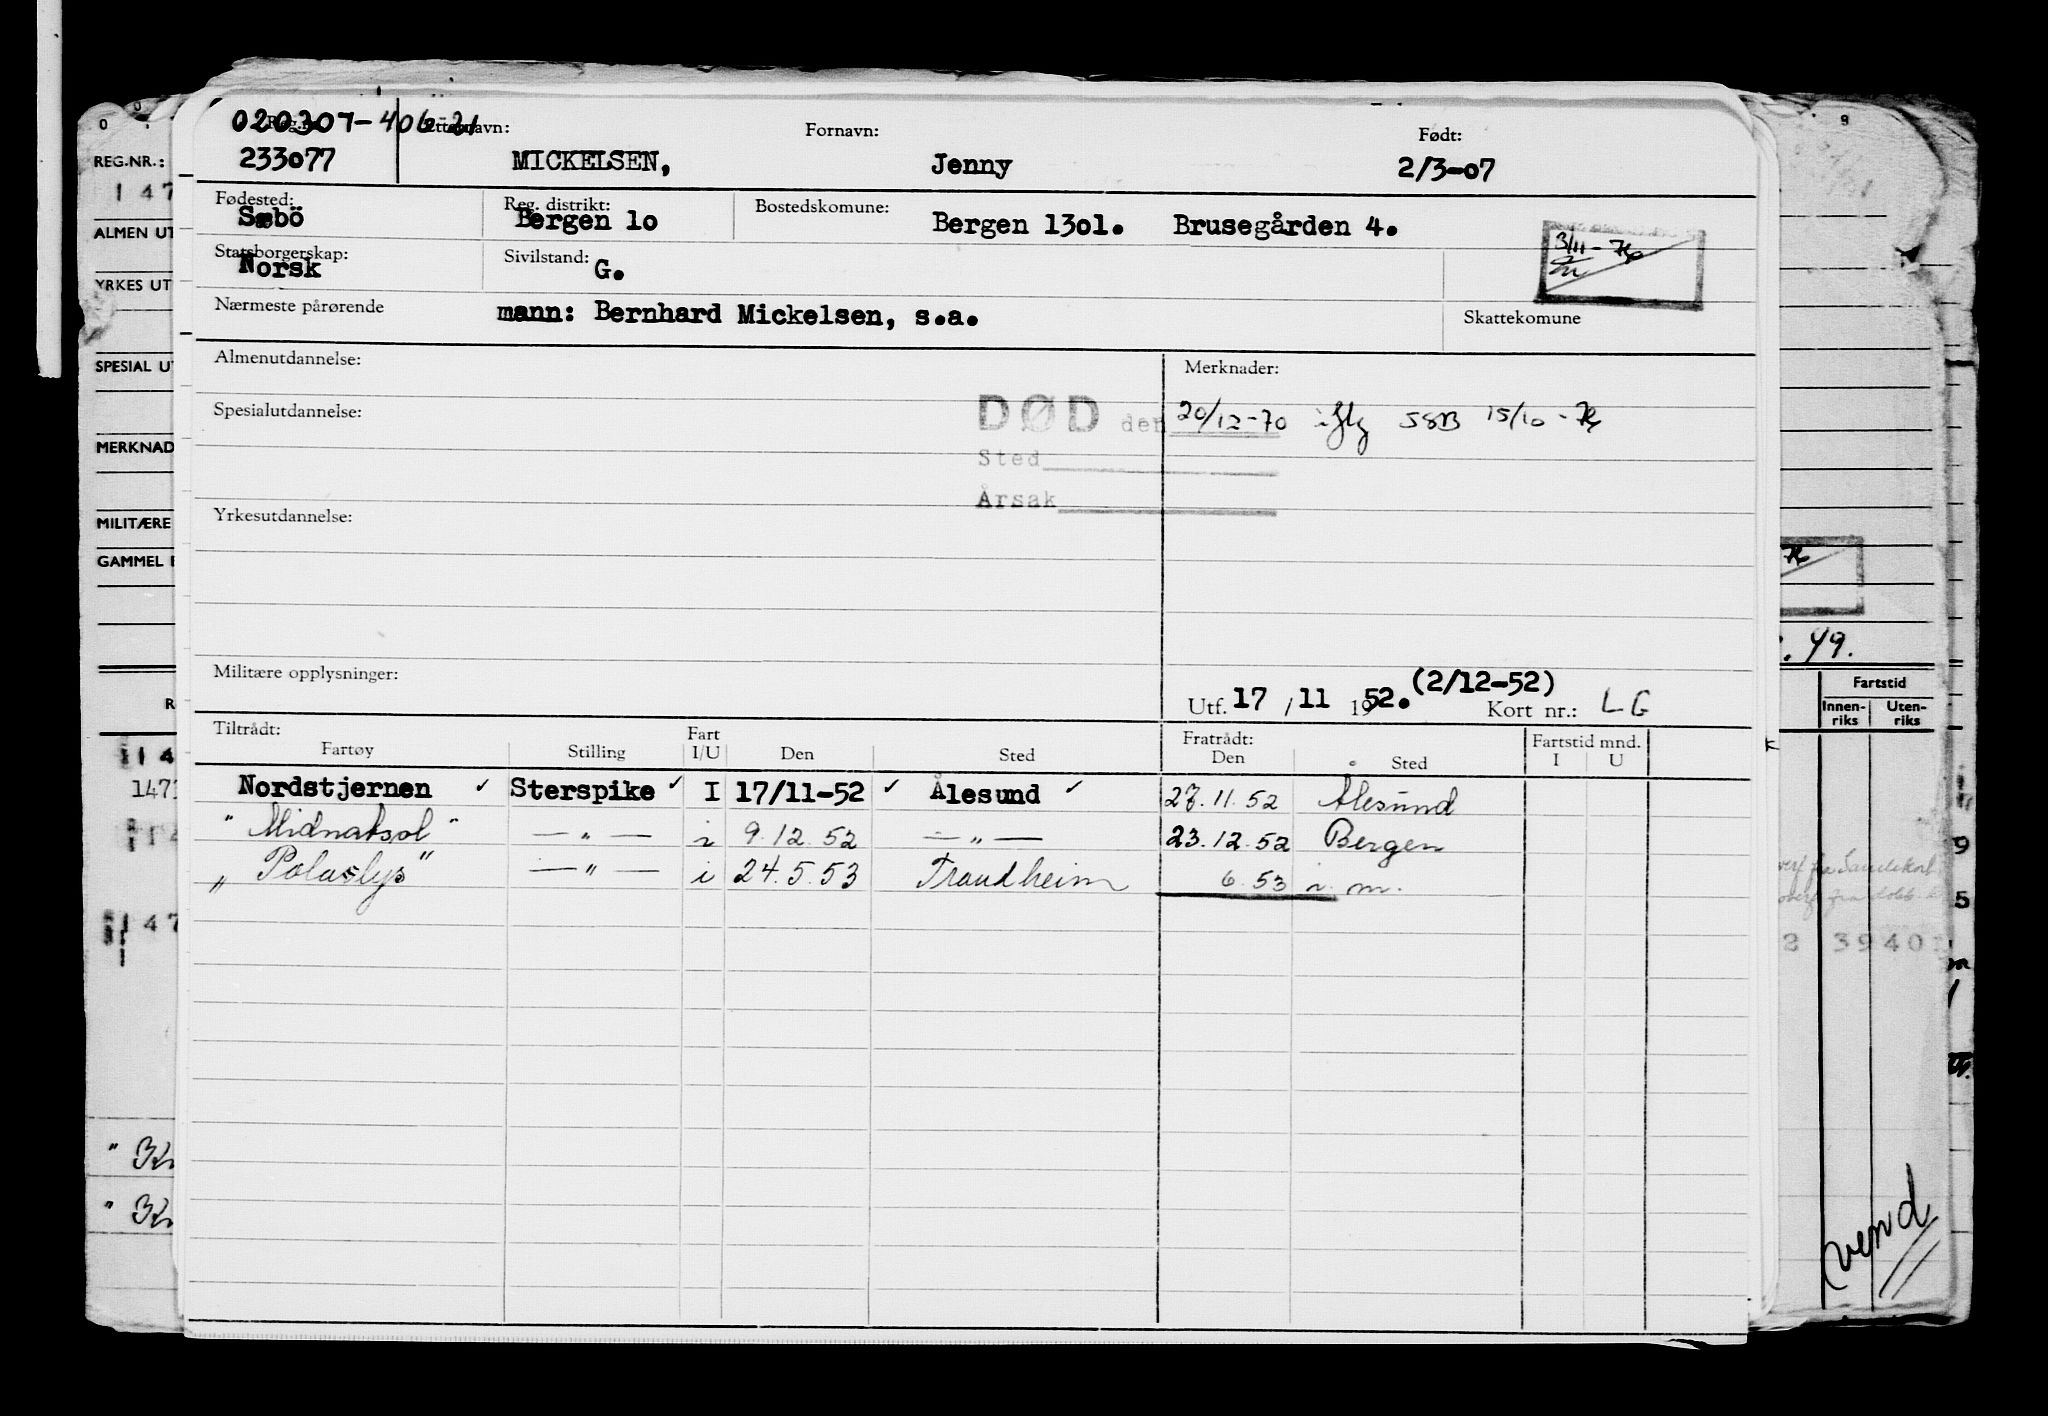 020307-406-21
Reg.nr. Etternavn: Fornavn: Født:
233077 MICKELSEN, Jenny 2/3-07
Fødested: Reg. distrikt: Bostedskomune:
Sæbö Bergen 1o Bergen 13o1. Brusegården 4.
Statsborgerskap: Sivilstand:
Norsk G.
3/11-
Nærmeste pårørende mann: Bernhard Mickelsen, s.a. Skattekomune
Almenutdannelse: Merknader:
Spesialutdannelse: DØD den 20/12-70 iflg SSB 15/10-
Sted
Årsak
Yrkesutdannelse:
Militære opplysninger:
Utf. 17 / 11 1952. (2/12-52) Kort nr.: LG
Tiltrådt: Fratrådt: Fartstid mnd.
Fartøy Stilling Fart I/U Den Sted Den Sted I U
Nordstjernen ✓ Sterspike ✓ I 17/11-52 ✓ Ålesund ✓ 27.11.52 Ålesund
"Midnatsol" — " — i 9.12.52 — " — 23.12.52 Bergen
"Polarlys" — " — i 24.5.53 Trondheim 6.53 i.m.
REG.NR.:
147
ALMEN UT
YRKES UT
SPESIAL UT
MERKNAD
MILITÆRE
GAMMEL
R
14
147
14
147
9
49.
Fartstid
Innen-riks Uten-riks
9
5
2 3940
vend